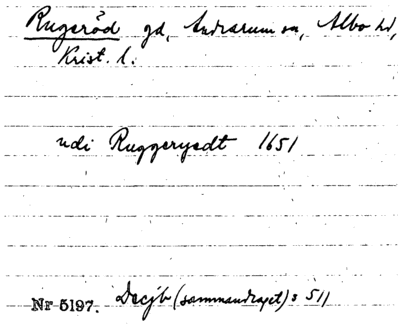 Rugeröd gd, Andrarum sn, Albo hd,
Krist. l.
udi Ruggerysdt 1651
Nr 5197. Decjb (sammandraget) s 511